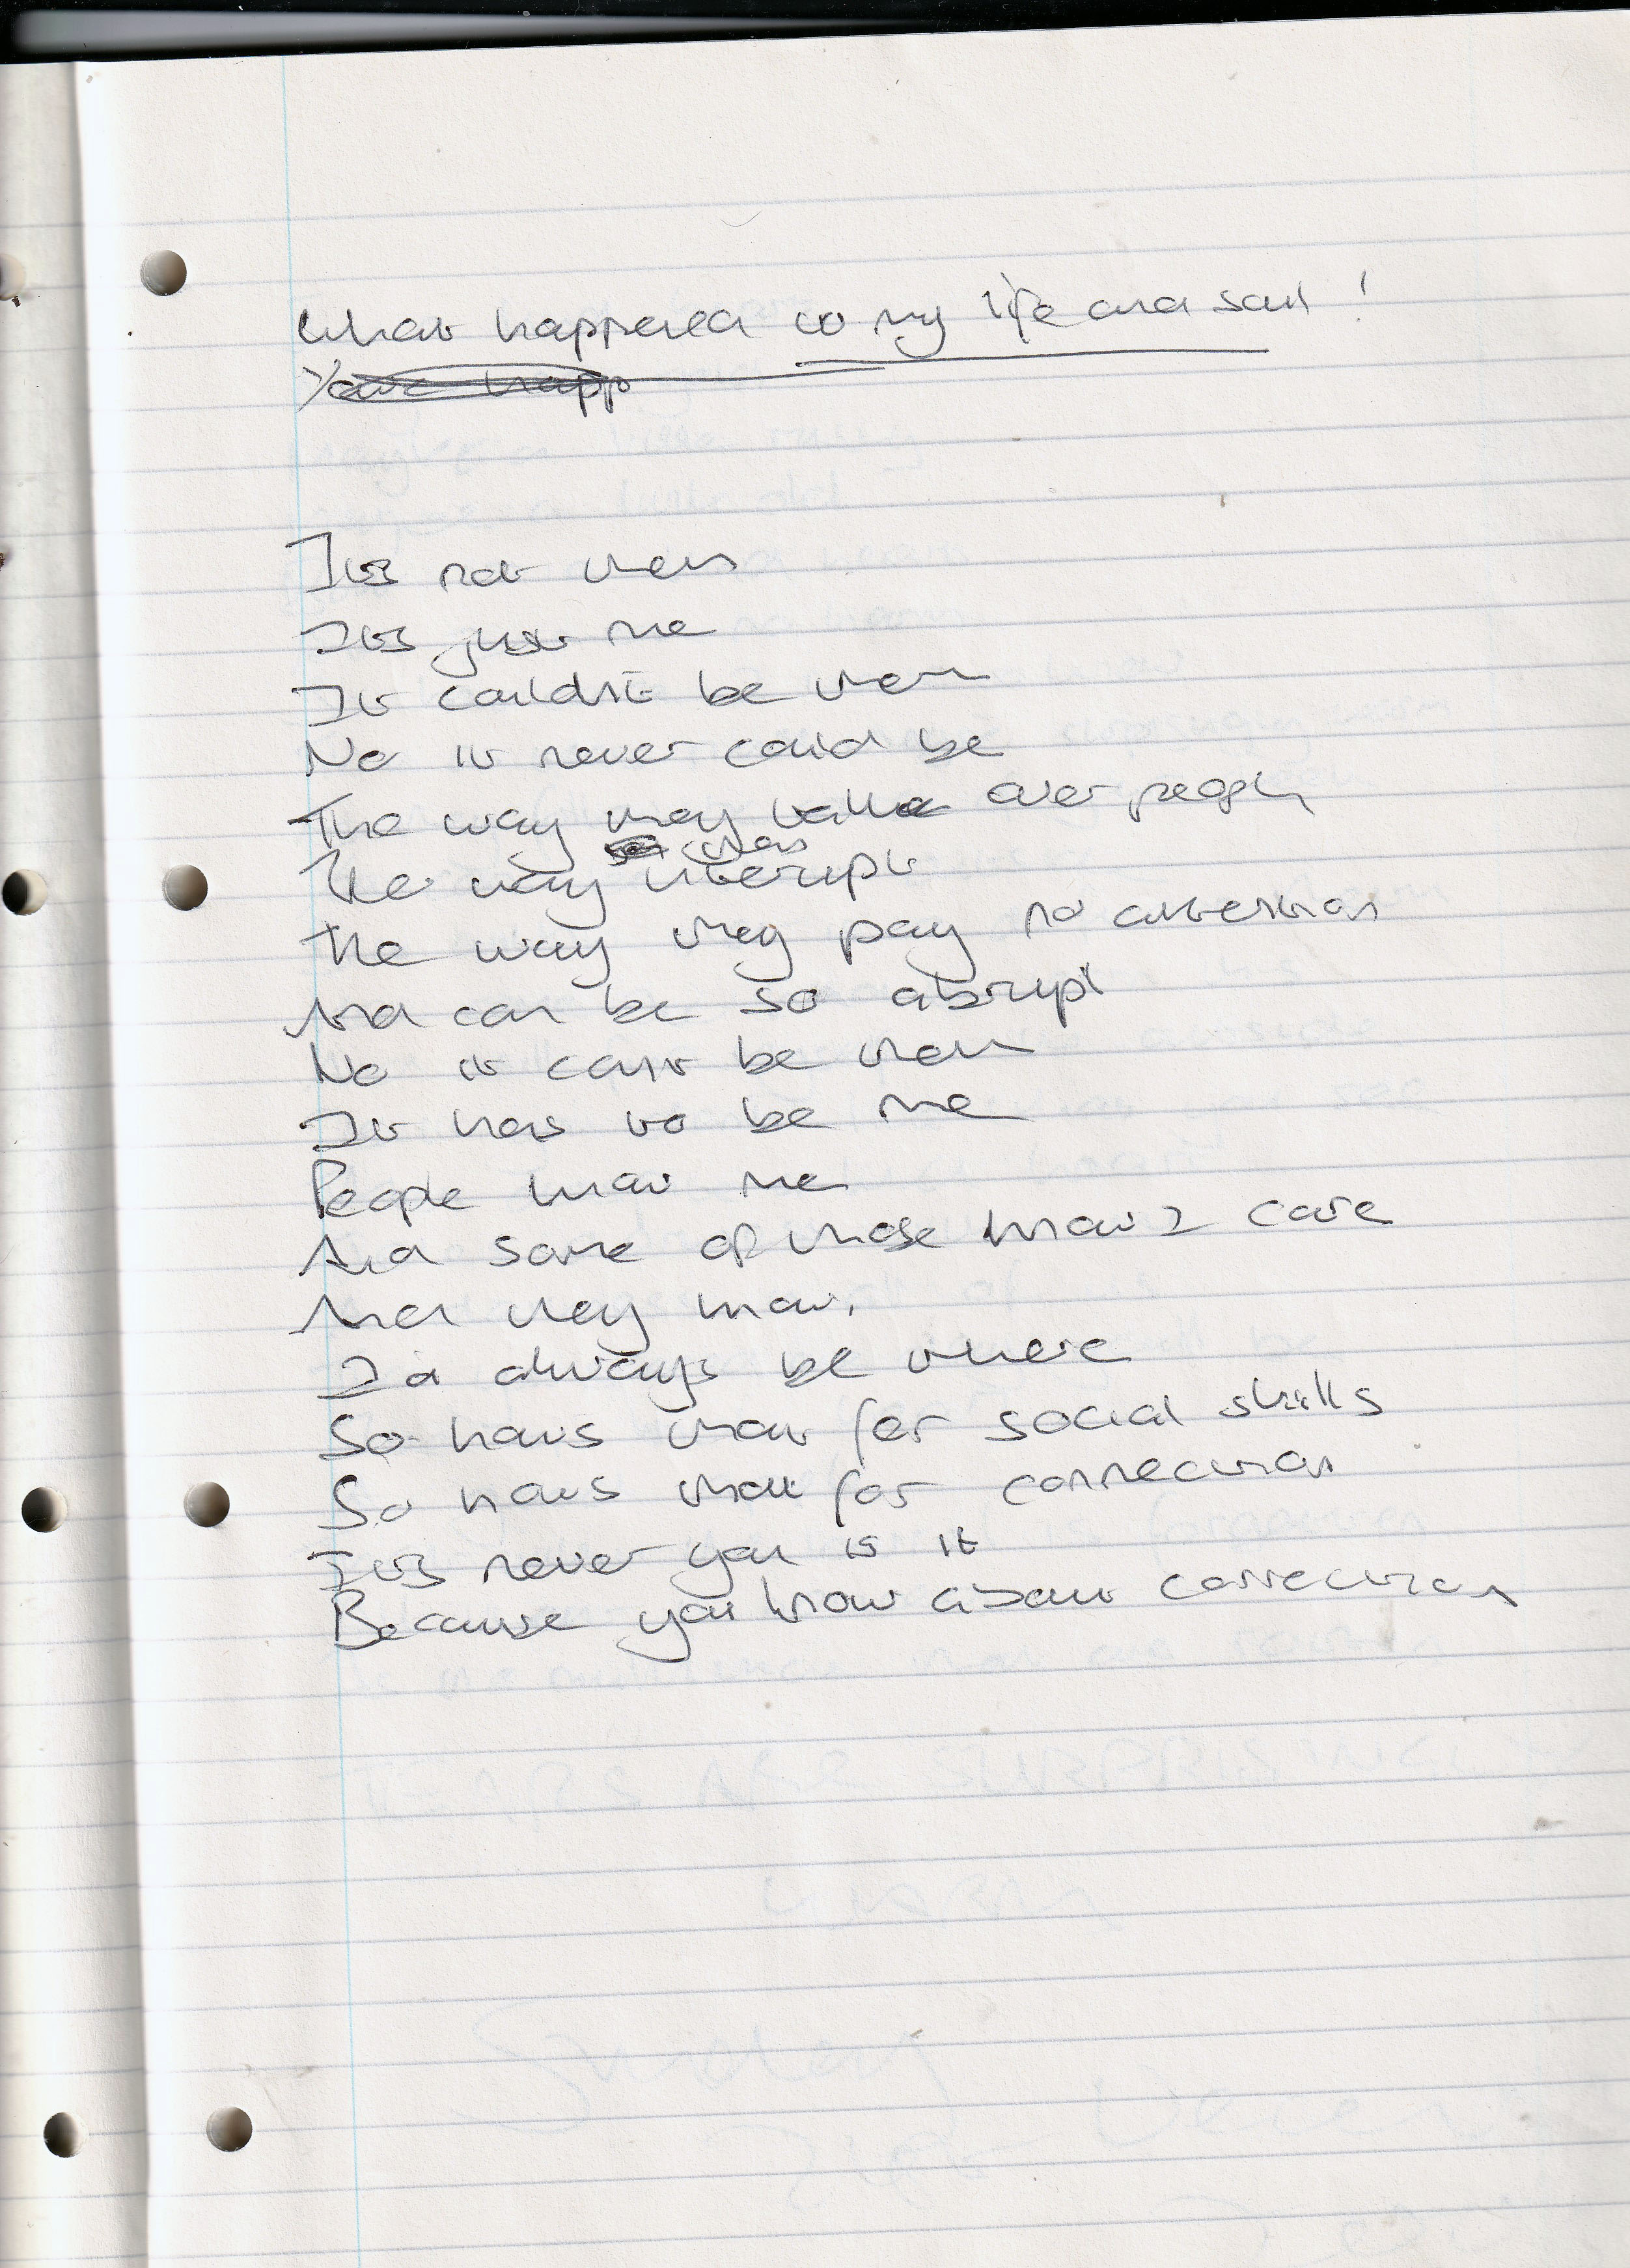 What happened to my life and soul!
Its not them
Its just me
It couldn't be them
No it never could be
The way they talk over people
The way interupt
The way they pay no attention
And can be so abrupt
No it cant be them
It has to be me
People know me
And some of those know I care
And they know.
Id always be there
So hows that for social skills
So hows that for connection
Its never you is it
Because you know about connection